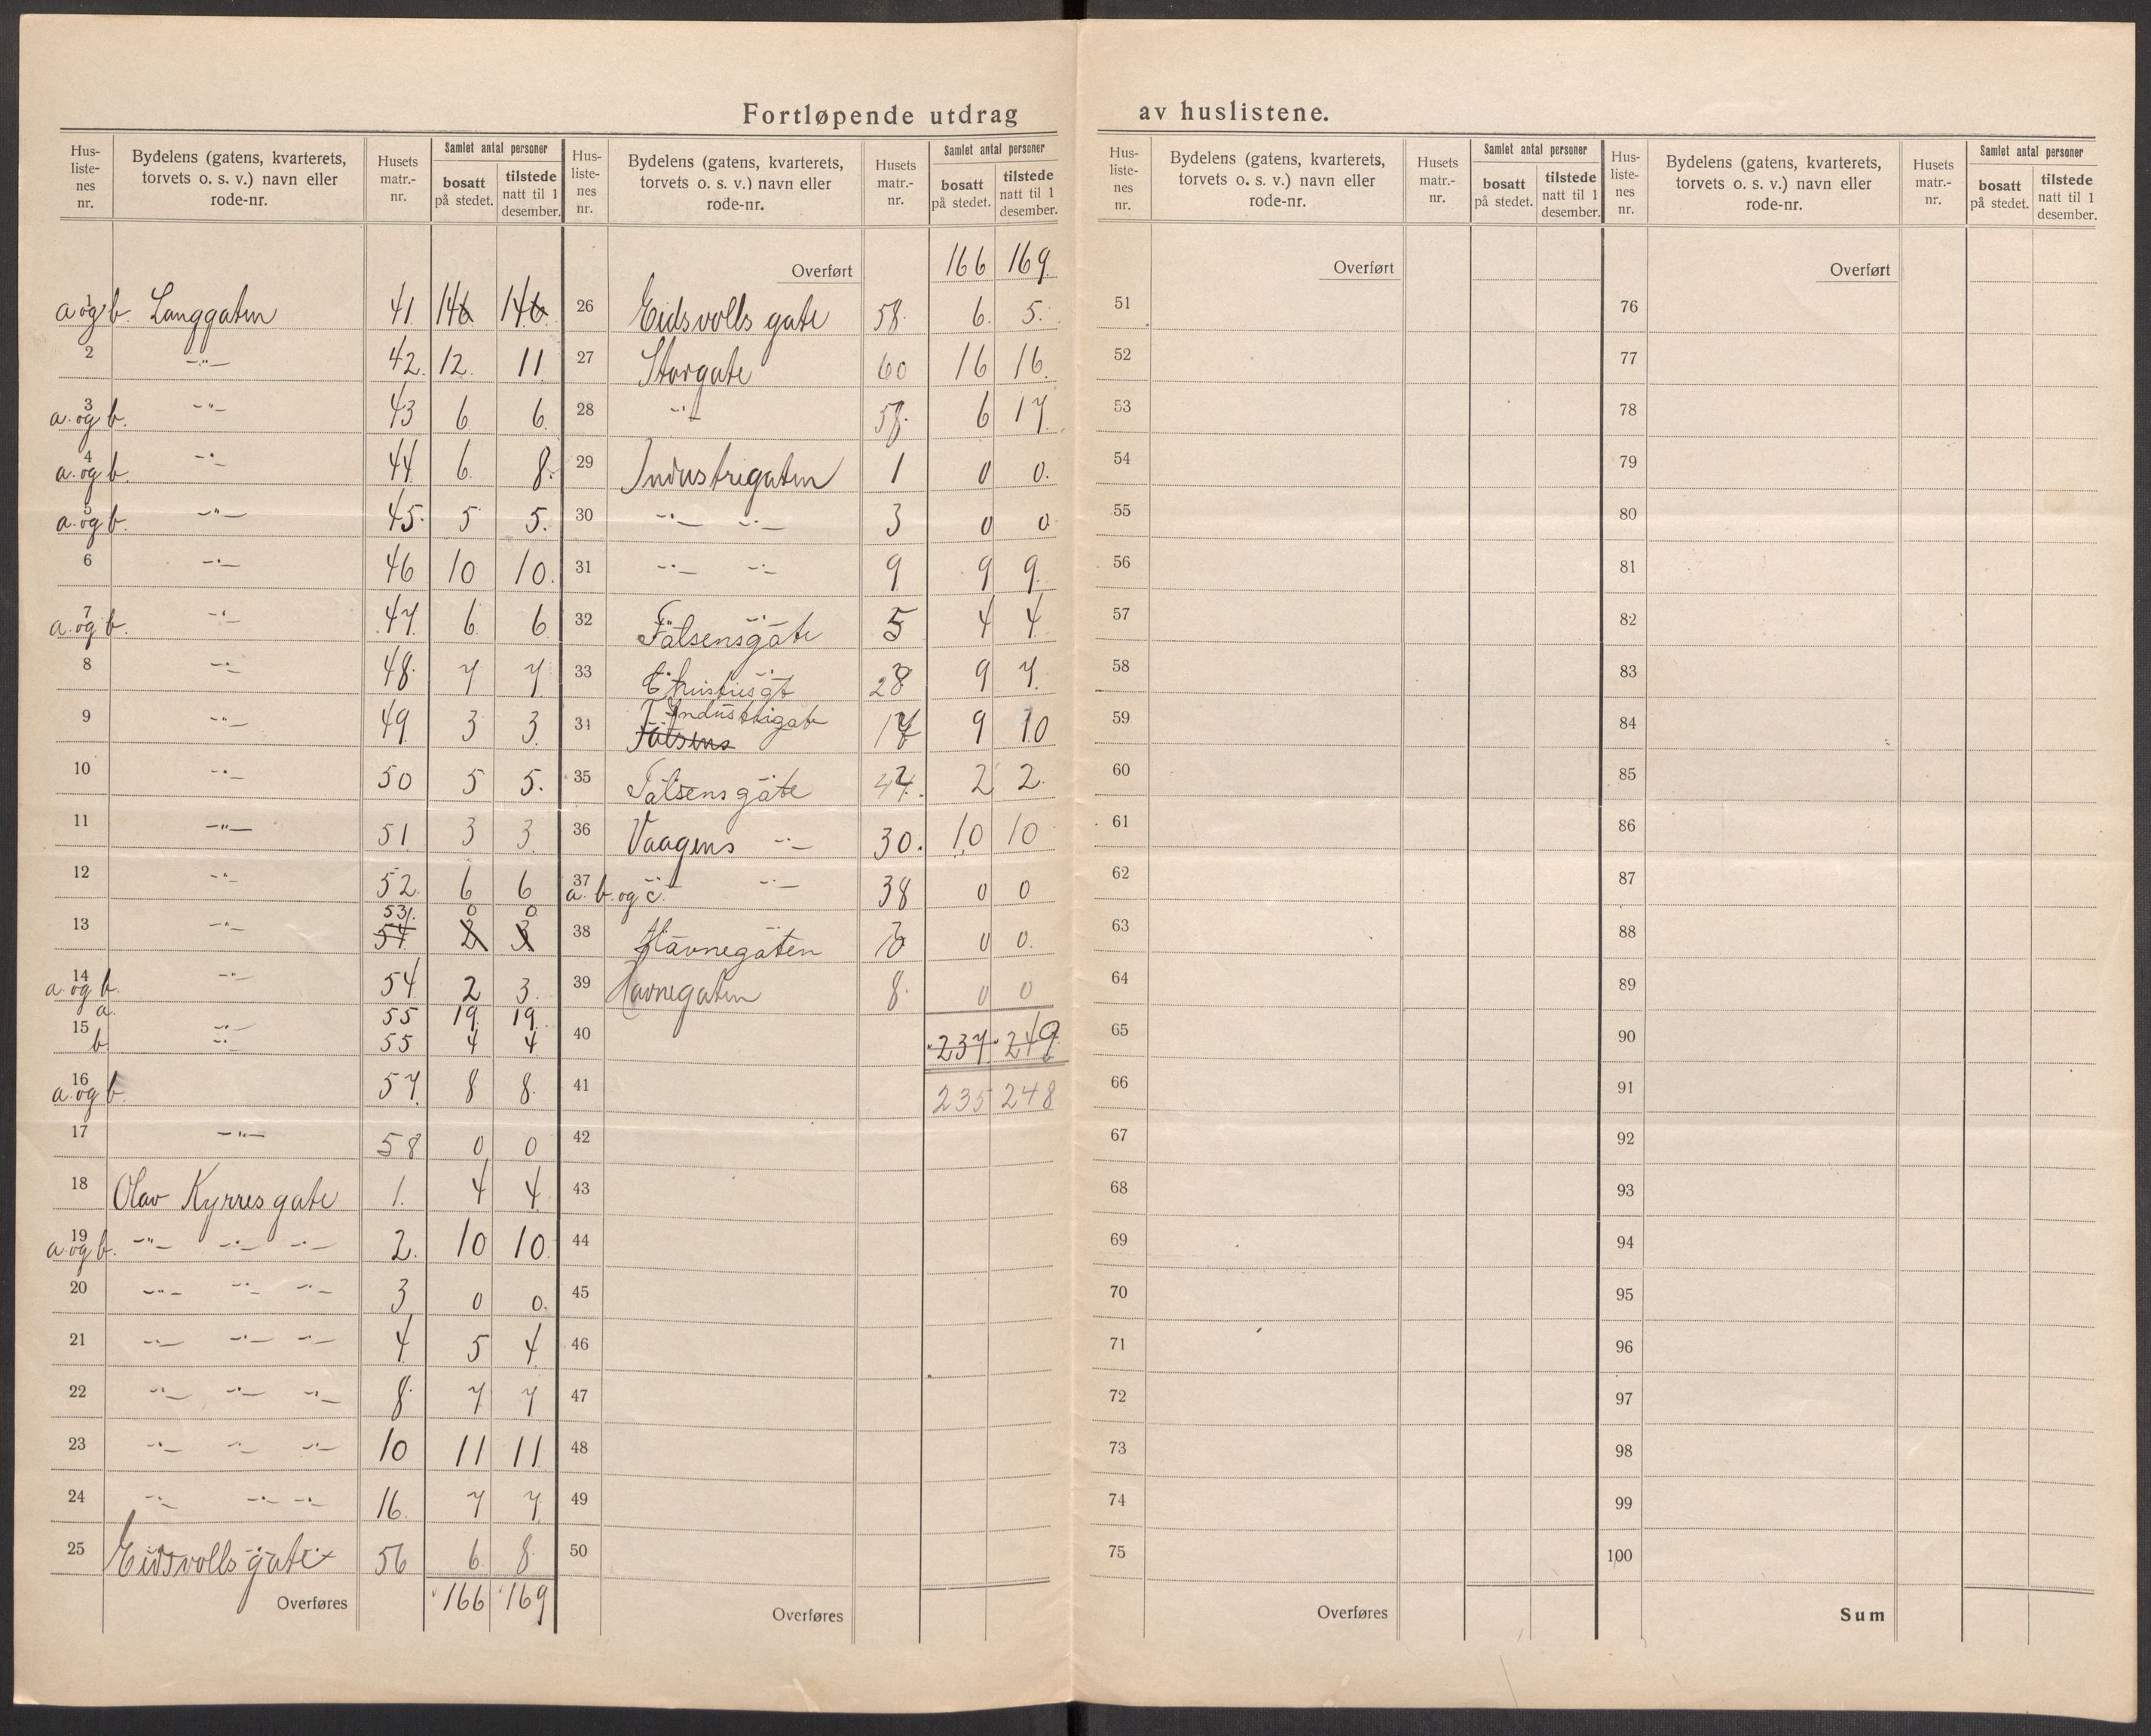 Fortløpende utdrag av huslistene.
Hus-liste-nes nr. | Bydelens (gatens, kvarterets, torvets o. s. v.) navn eller rode-nr. | Husets matr.-nr. | Samlet antal personer bosatt på stedet. | tilstede natt til 1 desember.
1 a og b. Langgaten 41 14 14
2 -"- 42. 12. 11
3 a. og b. -"- 43 6 6.
4 a. og b. -"- 44 6. 8.
5 a. og b. -"- 45. 5 5.
6 -"- 46 10 10.
7 a. og b. -"- 47. 6 6
8 -"- 48. 7 7
9 -"- 49. 3 3.
10 -"- 50 5 5.
11 -"- 51. 3 3.
12 -"- 52. 6 6
13 -"- 53. 54. 0 2 0 3
14 a. og b. -"- 54 2 3.
15 a. -"- 55 19. 19.
b -"- 55 4 4
16 a. og b. 57. 8 8.
17 -"- 58 0 0
18 Olav Kyrres gate 1. 4 4
19 a. og b. -"- -"- -"- 2. 10 10.
20 -"- -"- -"- 3 0 0.
21 -"- -"- -"- 4 5 4
22 -"- -"- -"- 8. 7 7
23 -"- -"- -"- 10 11 11
24 -"- -"- -"- 16. 7 7.
25 Eidsvolls gate 56 6. 8.
Overføres 166 169
Hus-liste-nes nr. | Bydelens (gatens, kvarterets, torvets o. s. v.) navn eller rode-nr. | Husets matr.-nr. | Samlet antal personer bosatt på stedet. | tilstede natt til 1 desember.
Overført 166 169
26 Eidsvolls gate 58. 6. 5.
27 Storgate 60 16 16.
28 -"- 6 17.
29 Industrigaten 1 0 0.
30 -"- -"- 3 0 0
31 -"- -"- 9 9 9.
32 Falsensgate 5 4 4
33 Christiesgt 28 9 7.
34 Industrigate Falsens 9 10
35 Falsens gate 2 2.
36 Vaagens -"- 30. 10 10
37 a. b. og c. -"- 38 0 0
38 Havnegaten 0 0.
39 Havnegaten 8. 0 0
40 237 249
41 235 248
42
43
44
45
46
47
48
49
50
Overføres
Hus-liste-nes nr. | Bydelens (gatens, kvarterets, torvets o. s. v.) navn eller rode-nr. | Husets matr.-nr. | Samlet antal personer bosatt på stedet. | tilstede natt til 1 desember.
Overført
51
52
53
54
55
56
57
58
59
60
61
62
63
64
65
66
67
68
69
70
71
72
73
74
75
Overføres
Hus-liste-nes nr. | Bydelens (gatens, kvarterets, torvets o. s. v.) navn eller rode-nr. | Husets matr.-nr. | Samlet antal personer bosatt på stedet. | tilstede natt til 1 desember.
Overført
76
77
78
79
80
81
82
83
84
85
86
87
88
89
90
91
92
93
94
95
96
97
98
99
100
Sum